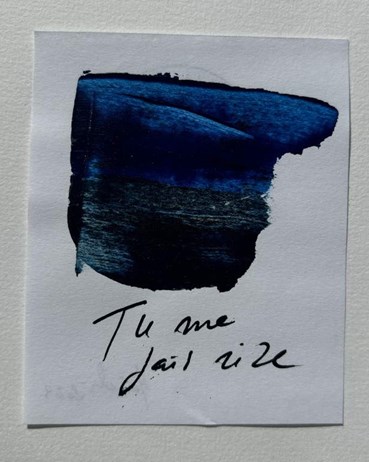 Tu me
fais rire